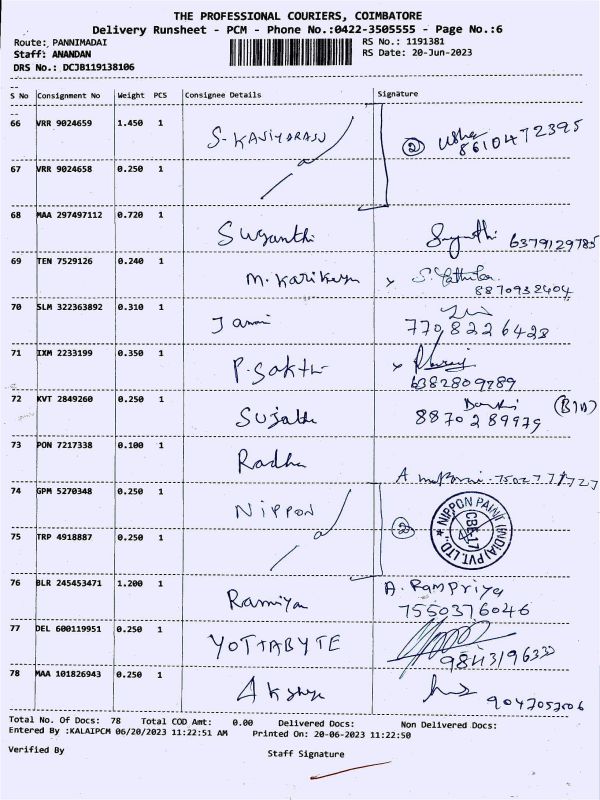 THE PROFESSIONAL COURIERS, COIMBATORE
Delivery Runsheet - PCM - Phone No.:0422-3505555 - Page No.:6
Route: PANNIMADAI RS No.: 1191381
Staff: ANANDAN RS Date: 20-Jun-2023
DRS No.: DCJB119138106
S No Consignment No Weight PCS Consignee Details Signature
66 VRR 9024659 1.450 1 S-KASIYARASU ② Usha 8610472395
67 VRR 9024658 0.250 1
68 MAA 297497112 0.720 1 Suganthi Suganthi 6379129785
69 TEN 7529126 0.240 1 M. Karikayn x 8870932404
70 SLM 322363892 0.310 1 7708226428
71 IXM 2233199 0.350 1 P. Sakthi x 6382809789
72 KVT 2849260 0.250 1 Sujatha 8870289979
73 PON 7217338 0.100 1 Radha
74 GPM 5270348 0.250 1 NIPPON ② NIPPON PAINT (INDIA) PVT. LTD.
75 TRP 4918887 0.250 1
76 BLR 245453471 1.200 1 Ramiya A. Rampriya
7550376046
77 DEL 600119951 0.250 1 YOTTABYTE 9843196333
78 MAA 101826943 0.250 1 Akshya
Total No. Of Docs: 78 Total COD Amt: 0.00 Delivered Docs: Non Delivered Docs:
Entered By :KALAIPCM 06/20/2023 11:22:51 AM Printed On: 20-06-2023 11:22:50
Verified By Staff Signature